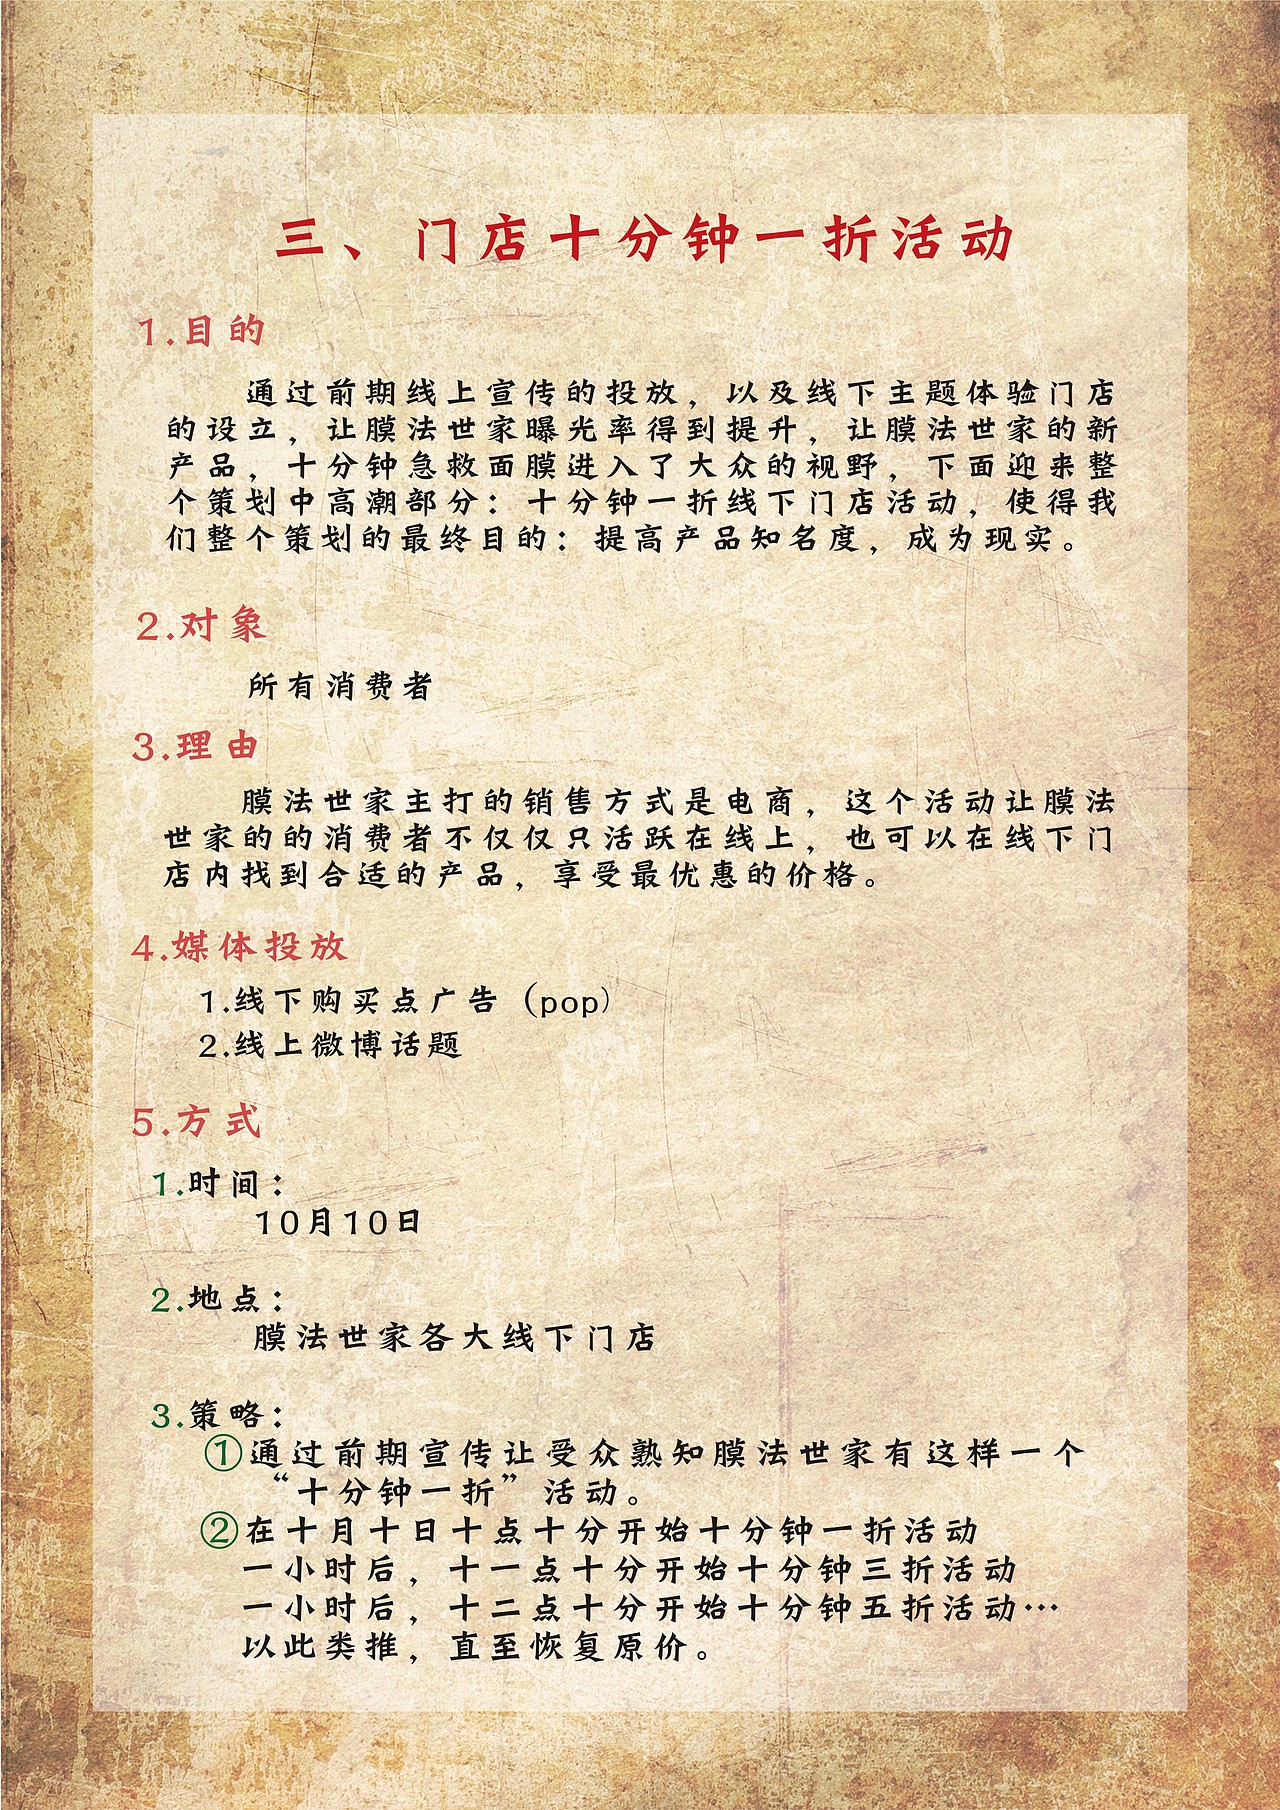 三、门店十分钟一折活动
1.目的
通过前期线上宣传的投放，以及线下主题体验门店
的设立，让膜法世家曝光率得到提升，让膜法世家的新
产品，十分钟急救面膜进入了大众的视野，下面迎来整
个策划中高潮部分：十分钟一折线下门店活动，使得我
们整个策划的最终目的：提高产品知名度，成为现实。
2.对象
所有消费者
3.理由
膜法世家主打的销售方式是电商，这个活动让膜法
世家的的消费者不仅仅只活跃在线上，也可以在线下门
店内找到合适的产品，享受最优惠的价格。
4.媒体投放
1.线下购买点广告（pop）
2.线上微博话题
5.方式
1.时间：
10月10日
2.地点：
膜法世家各大线下门店
3.策略：
①通过前期宣传让受众熟知膜法世家有这样一个
“十分钟一折”活动。
②在十月十日十点十分开始十分钟一折活动
一小时后，十一点十分开始十分钟三折活动
一小时后，十二点十分开始十分钟五折活动…
以此类推，直至恢复原价。